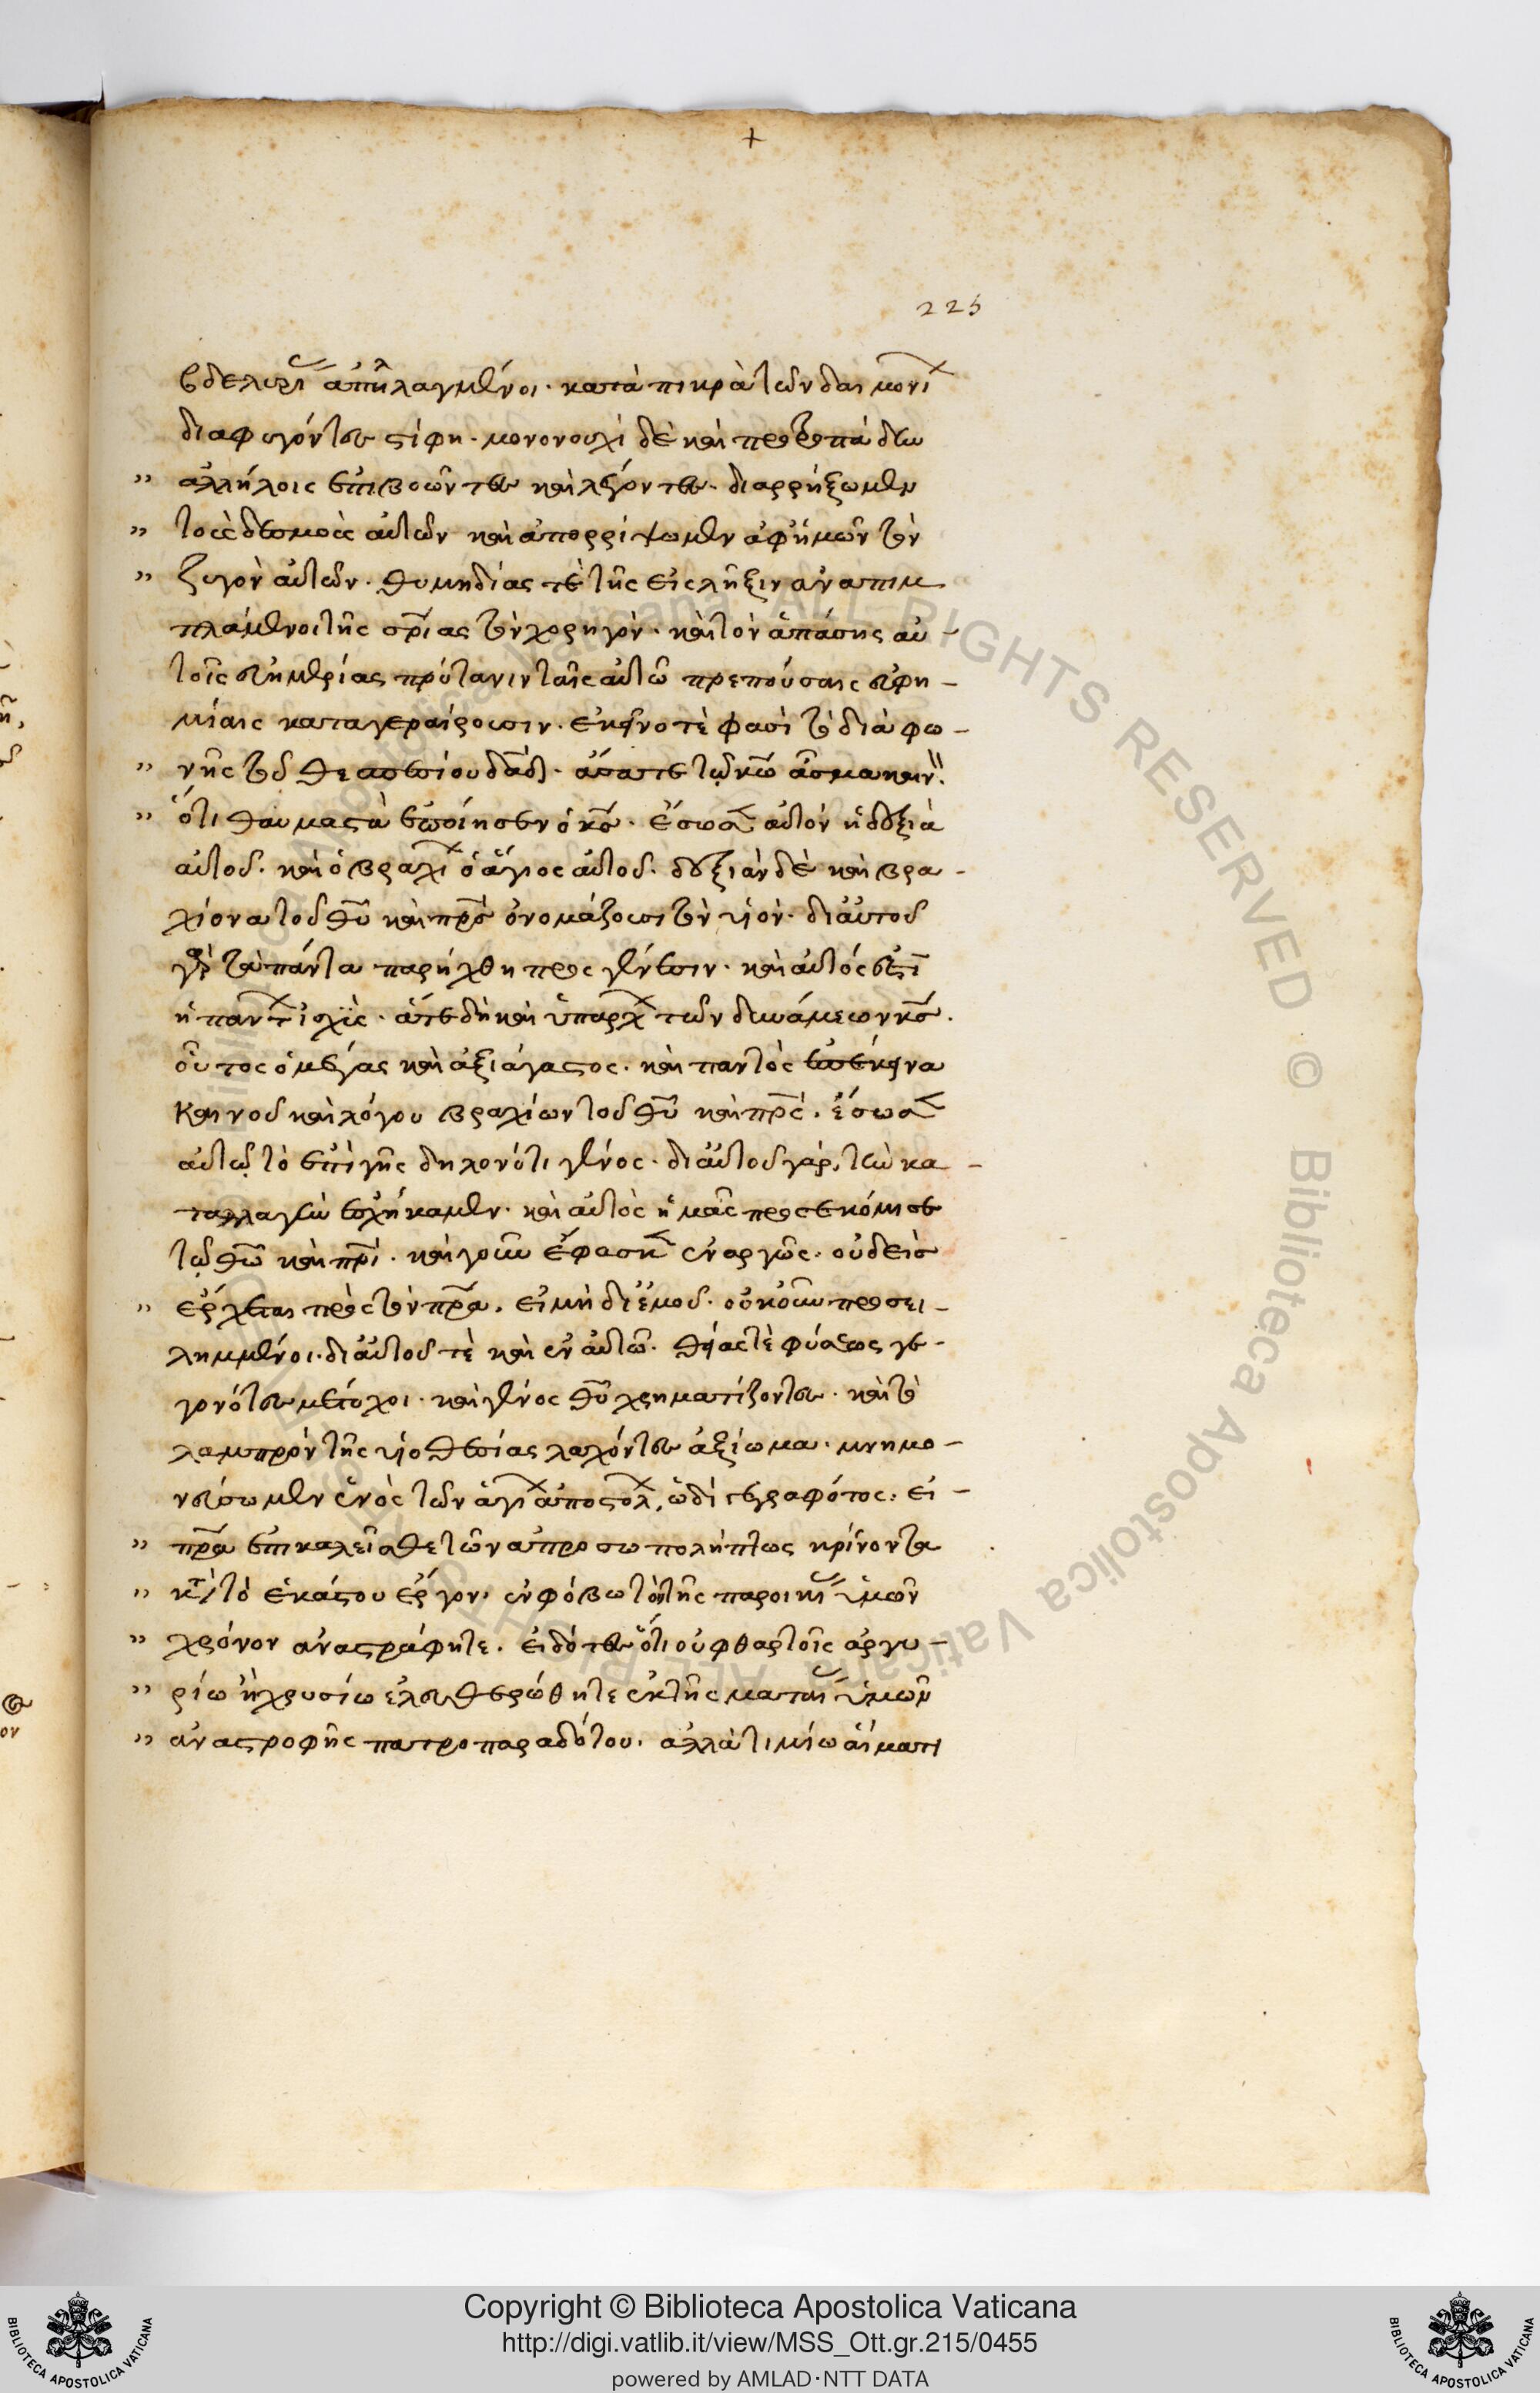 +
225
βδελυρί ἀπηλλαγμένοι. κατὰ πικρὰ τῶν δαιμονί
διαφυγόντες στίφη. μονονουχὶ δὲ καὶ
ἀλλήλοις ἐπιβοῶντες καὶ λέγοντες. διαρρήξωμεν
τοὺς δεσμοὺς αὐτῶν καὶ ἀπορρίψωμεν ἀφ' ἡμῶν τὸν
ζυγὸν αὐτῶν. θυμηδίας τὲ τῆς εἰς λῆξιν ἀναπιμ
πλάμενοι τῆς σρίας τὸν χορηγόν. καὶ τὸν ἁπάσης αὐ-
τοῖς εὐημερίας πρύτανιν ταῖς αὐτῶ πρεπούσαις εὐφη-
μίαις καταγεραίρουσιν. ἐκεῖνο τὲ φασὶ τὸ διὰ φω-
νῆς τοῦ θεσπεσίου δαδ. ἄσατε τῷ κω ἆσμα καινόν.
ὅτι θαυμαστὰ ἐποίησεν ὁ κς. ἔσωσ αὐτὸν ἡ δεξιὰ
αὐτοῦ. καὶ ὁ βραχί ὁ ἅγιος αὐτοῦ. δεξιὰν δὲ καὶ βρα-
χίονα τοῦ θυ καὶ πρς ὀνομάζουσι τὸν υἱόν. δι' αὐτοῦ
γὰρ τὰ πάντα παρήχθη πρὸς γένεσιν. καὶ αὐτός ἐστι
ἡ παντ ἰσχὺς. ἅτε δὴ καὶ ὑπάρχ τῶν δυνάμεων κς.
οὗτος ὁ μέγας καὶ ἀξιάγαστος. καὶ παντὸς ἐπέκεινα
καὶ νοῦ καὶ λόγου βραχίων τοῦ θυ καὶ πρς. ἔσωσ
αὐτῷ τὸ ἐπὶ γῆς δηλονότι γένος. δι' αὐτοῦ γάρ, τὴν κα-
ταλλαγὴν ἐσχήκαμεν. καὶ αὐτὸς ἡμᾶς προσεκόμισε
τῷ θω καὶ πρι. καὶ γοῦν ἔφασκ ἐναργῶς. οὐδεὶς
ἔρχεται πρὸς τὸν πρα. εἰ μὴ δι' ἐμοῦ. οὐκοῦν προσει-
λημμένοι. δι' αὐτοῦ τὲ καὶ ἐν αὐτῶ. θείας τὲ φύσεως γε-
γονότες μέτοχοι. καὶ γένος θυ χρηματίζοντες. καὶ τὸ
λαμπρὸν τῆς υἱοθεσίας λαχόντες ἀξίωμα. μνημο-
νεύσωμεν ἑνὸς τῶν ἁγί ἀποστόλ, ὡδὶ γεγραφότος. εἰ-
πρα ἐπικαλεῖσθε τὸν ἀπροσωπολήπτως κρίνοντα
κτ τὸ ἑκάστου ἔργον. ἐν φόβω τὸν τῆς παροικί ὑμῶν
χρόνον ἀναστράφητε. εἰδότες ὅτι οὐ φθαρτοῖς ἀργυ-
ρίω ἢ χρυσίω ἐλευθερώθητε ἐκ τῆς ματαί ὑμῶν
ἀναστροφῆς πατροπαραδότου. ἀλλὰ τιμίω αἵματι
Copyright © Biblioteca Apostolica Vaticana
http://digi.vatlib.it/view/MSS_Ott.gr.215/0455
powered by AMLAD·NTT DATA